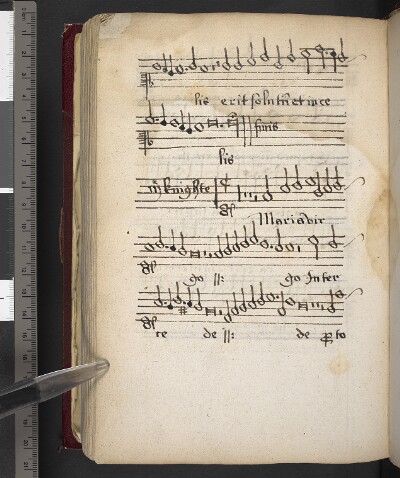 lis erit solut et in ce
finis
lis
mr knighte
Maria vir
go ||: go Inter
ce de ||: de p to